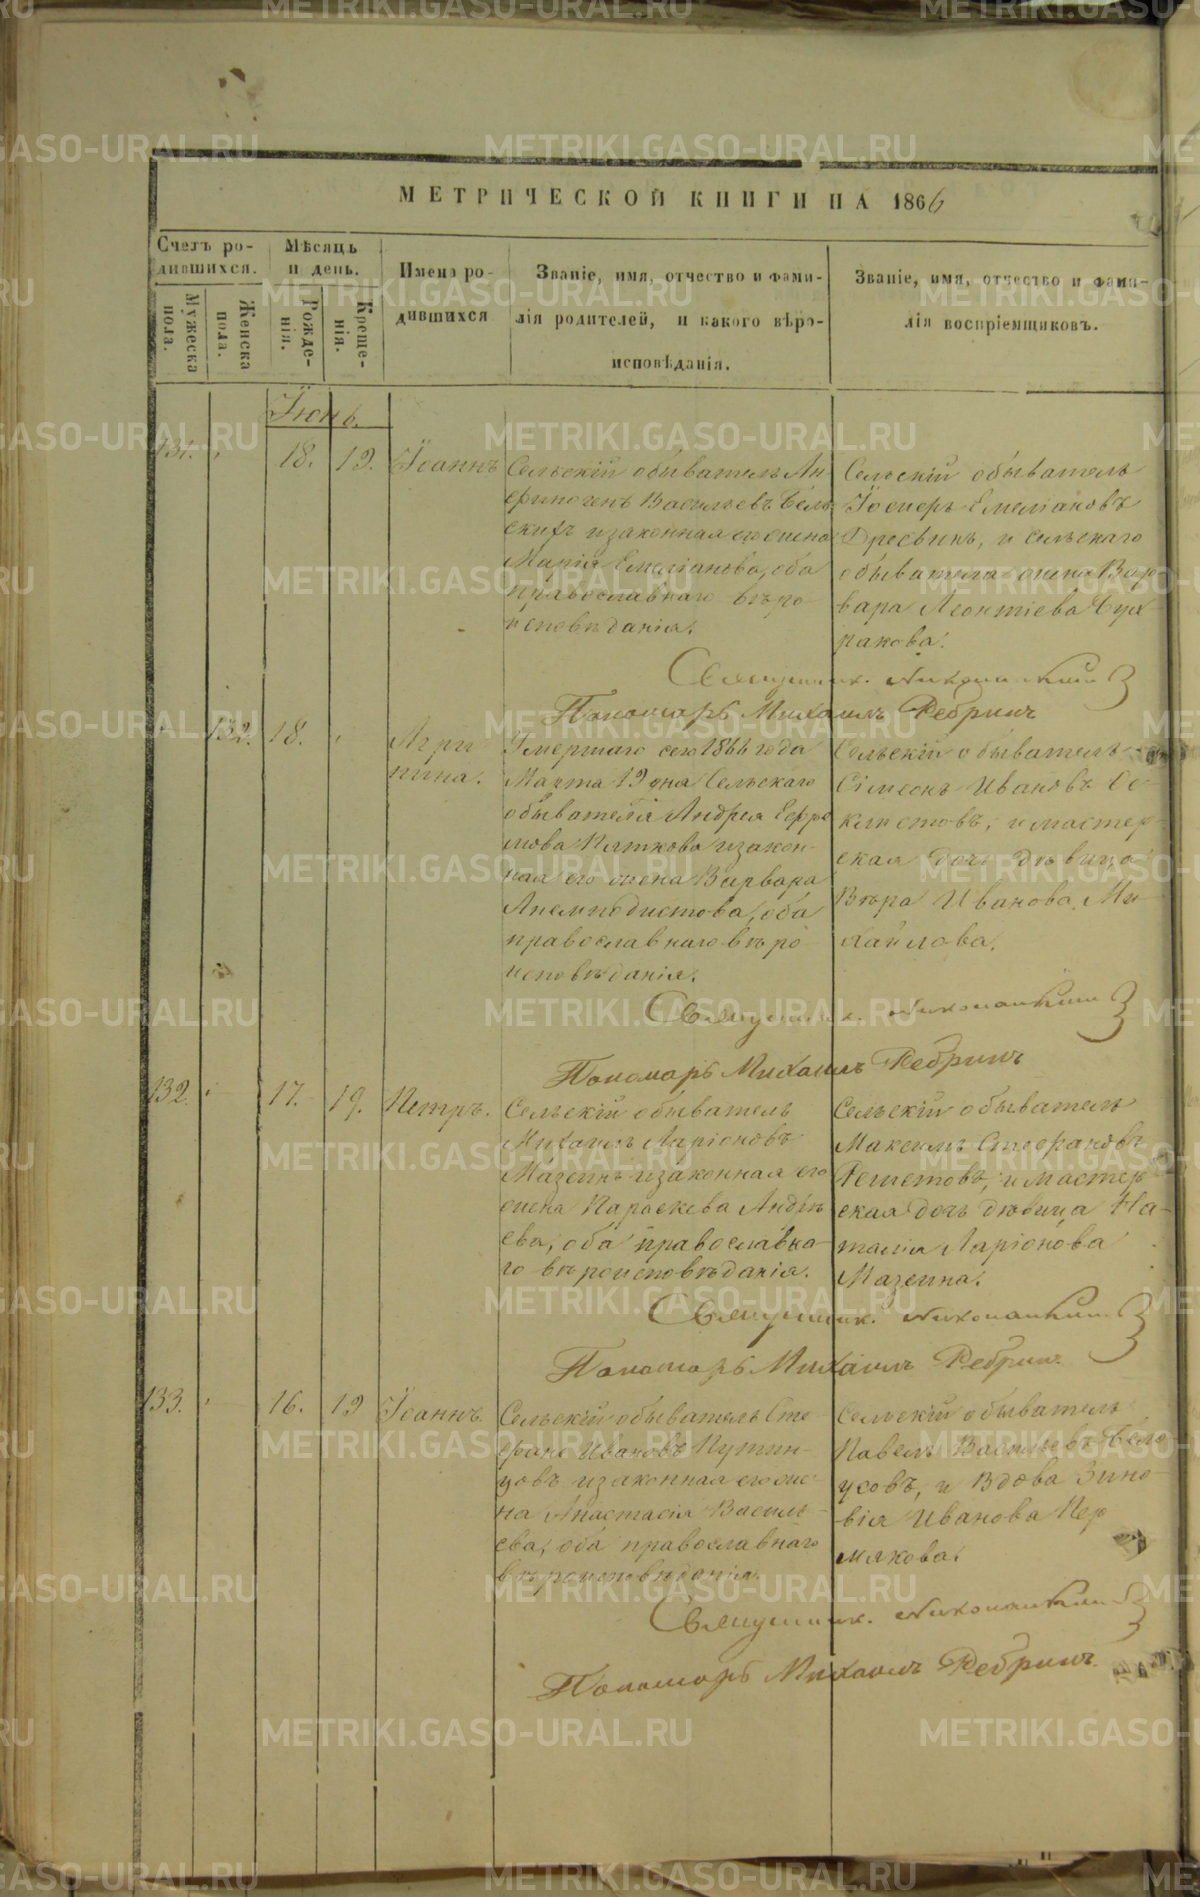 МЕТРИЧЕСКОЙ КНИГИ НА 1866
Счетъ ро-
дившихся.
Мужеска
пола.
Женска
пола.
Мѣсяцъ
и день.
Рожде-
нія.
Креще-
нія.
Имена ро-
дившихся
Званіе, имя, отчество и фами-
лія родителей, и какого вѣро-
исповѣданія.
Званіе, имя, отчество и фами-
лія воспріемщиковъ.
Іюнь.
131.
18.
19.
Іоаннъ
Сельскій обыватель Ан
финогенъ Васильевъ Бѣль
скихъ и законная его жена
Марія Емеліанова, оба
православнаго вѣро
исповѣданія.
Сельскій обыватель
Іосиеръ Емеліановъ
Дресвинъ, и сельскаго
обывателя жена Вар
вара Леонтіева Бух
ракова.
Священник. Никопитинъ
Пономарь Михаилъ Ребринъ
132.
18.
Агри
пина.
Умершаго сего 1866 года
Марта 19 дня Сельскаго
обывателя Андрея Ефре
мова Пяткова и закон-
ная его жена Варвара
Анемподистова, оба
православнаго вѣро
исповѣданія.
Сельскій обыватель
Сімеонъ Ивановъ Се
клистовъ, и мастер
ская дочь дѣвица
Вѣра Иванова Ми
хайлова.
Священник.
Пономарь Михаилъ Ребринъ
132.
17.
19.
Петръ.
Сельскій обыватель
Михаилъ Ларіоновъ
Мазеинъ и законная его
жена Параскева Андрѣ
ева, оба православна
го вѣроисповѣданія.
Сельскій обыватель
Максимъ Стефановъ
Решетовъ, и мастер
ская дочь дѣвица На-
талія Ларіонова
Мазеина.
Священник.
Пономарь Михаилъ Ребринъ
133.
16.
19
Іоаннъ.
Сельскій обыватель Сте
фанъ Ивановъ Путин-
цовъ и законная его же-
на Анастасія Василь-
ева, оба православнаго
вѣроисповѣданія.
Сельскій обыватель
Павелъ Васильевъ Бѣло
усовъ, и вдова Зино-
вія Иванова Пер
мякова.
Священник.
Пономарь Михаилъ Ребринъ
METRIKI.GASO-URAL.RU